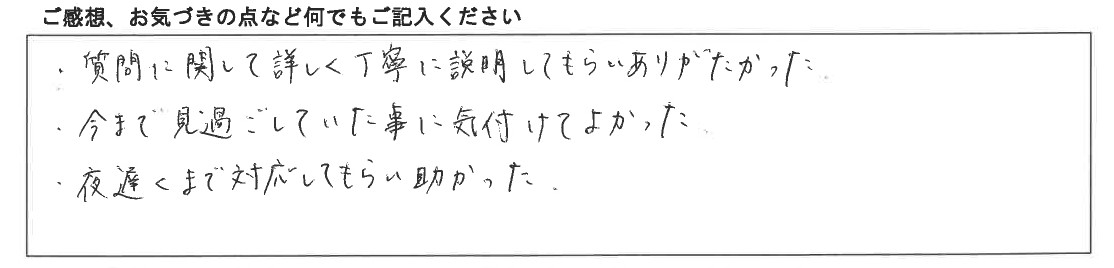 ご感想、お気づきの点など何でもご記入ください
・質問に関して詳しく丁寧に説明してもらいありがたかった
・今まで見過ごしていた事に気付けてよかった
・夜遅くまで対応してもらい助かった.